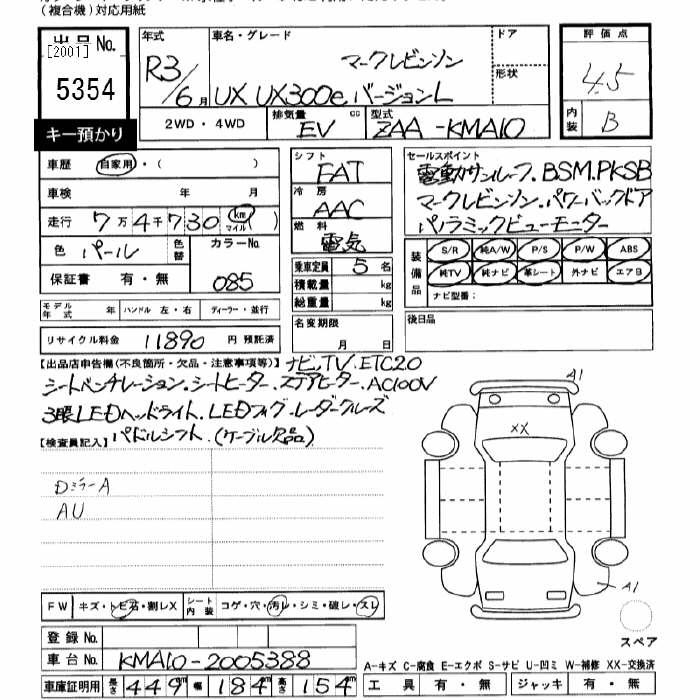 (複合機)対応用紙
出品No.
[2001]
5354
キー預かり
年式 R3/6月
車名・グレード マークレビンソン
UX UX300e バージョンL
ドア
形状
評価点
4.5
内装 B
2WD・4WD
排気量 EV cc
型式 ZAA-KMA10
車歴 自家用・( )
車検 年 月
走行 7万4千730 km マイル
色 パール 色替 カラーNo. 085
保証書 有・無
シフト FAT
冷房 AAC
燃料 電気
乗車定員 5名
積載量 kg
総重量 kg
名変期限 月 日
セールスポイント
電動サンルーフ.BSM.PKSB
マークレビンソン.パワーバックドア
パノラミックビューモニター
装備品 S/R 純A/W P/S P/W ABS
純TV 純ナビ 革シート 外ナビ エアB
ナビ型番:
後日品
モデル年式 年 ハンドル 左・右 ディーラー・並行
リサイクル料金 11890 円 預託済
【出品店申告欄(不良箇所・欠品・注意事項等)】ナビ.TV.ETC2.0
シートベンチレーション.シートヒーター.ステアヒーター.AC100V
3眼LEDヘッドライト.LEDフォグ.レーダークルーズ
パドルシフト.(ケーブル欠品)
【検査員記入】
DミラーA
AU
A1
XX
A1
スペア
FW キズ・トビ石・割レX シート内装 コゲ・穴・汚レ・シミ・破レ・スレ
登録No.
車台No. KMA10-2005388
車庫証明用 長さ 449cm 幅 184cm 高さ 154cm
A-キズ C-腐食 E-エクボ S-サビ U-凹ミ W-補修 XX-交換済
工具 有・無 ジャッキ 有・無